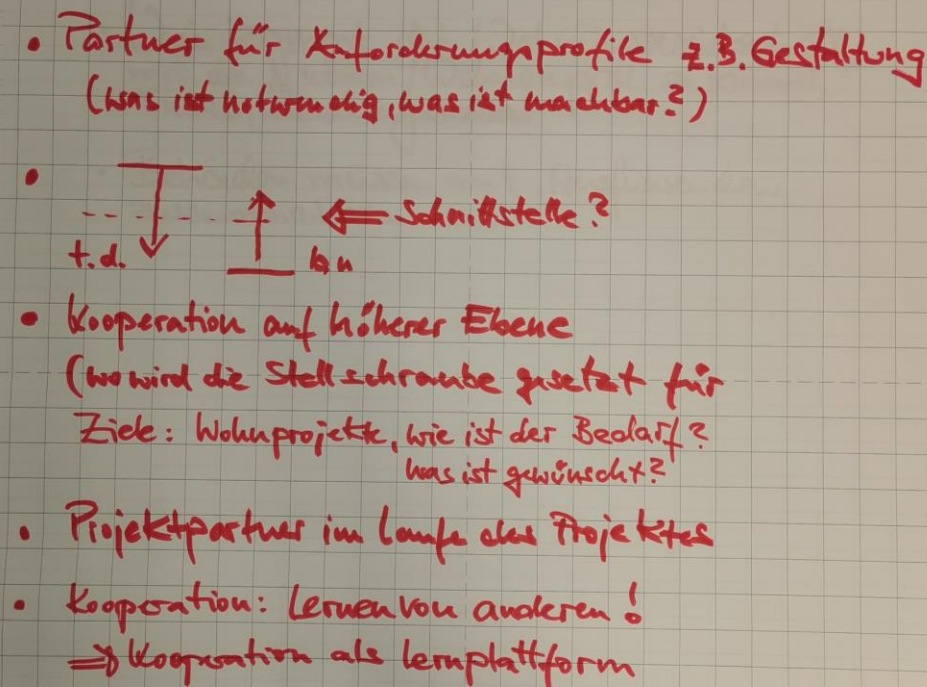 • Partner für Anforderungsprofile z.B. Gestaltung
(was ist notwendig, was ist machbar?)
• ⇐ Schnittstelle?
t.d. b.u
• Kooperation auf höherer Ebene
(wo wird die Stellschraube gesetzt für
Ziele: Wohnprojekte, wie ist der Bedarf?
was ist gewünscht?
• Projektpartner im Laufe des Projektes
• Kooperation: Lernen von anderen!
⇒ Kooperation als Lernplattform